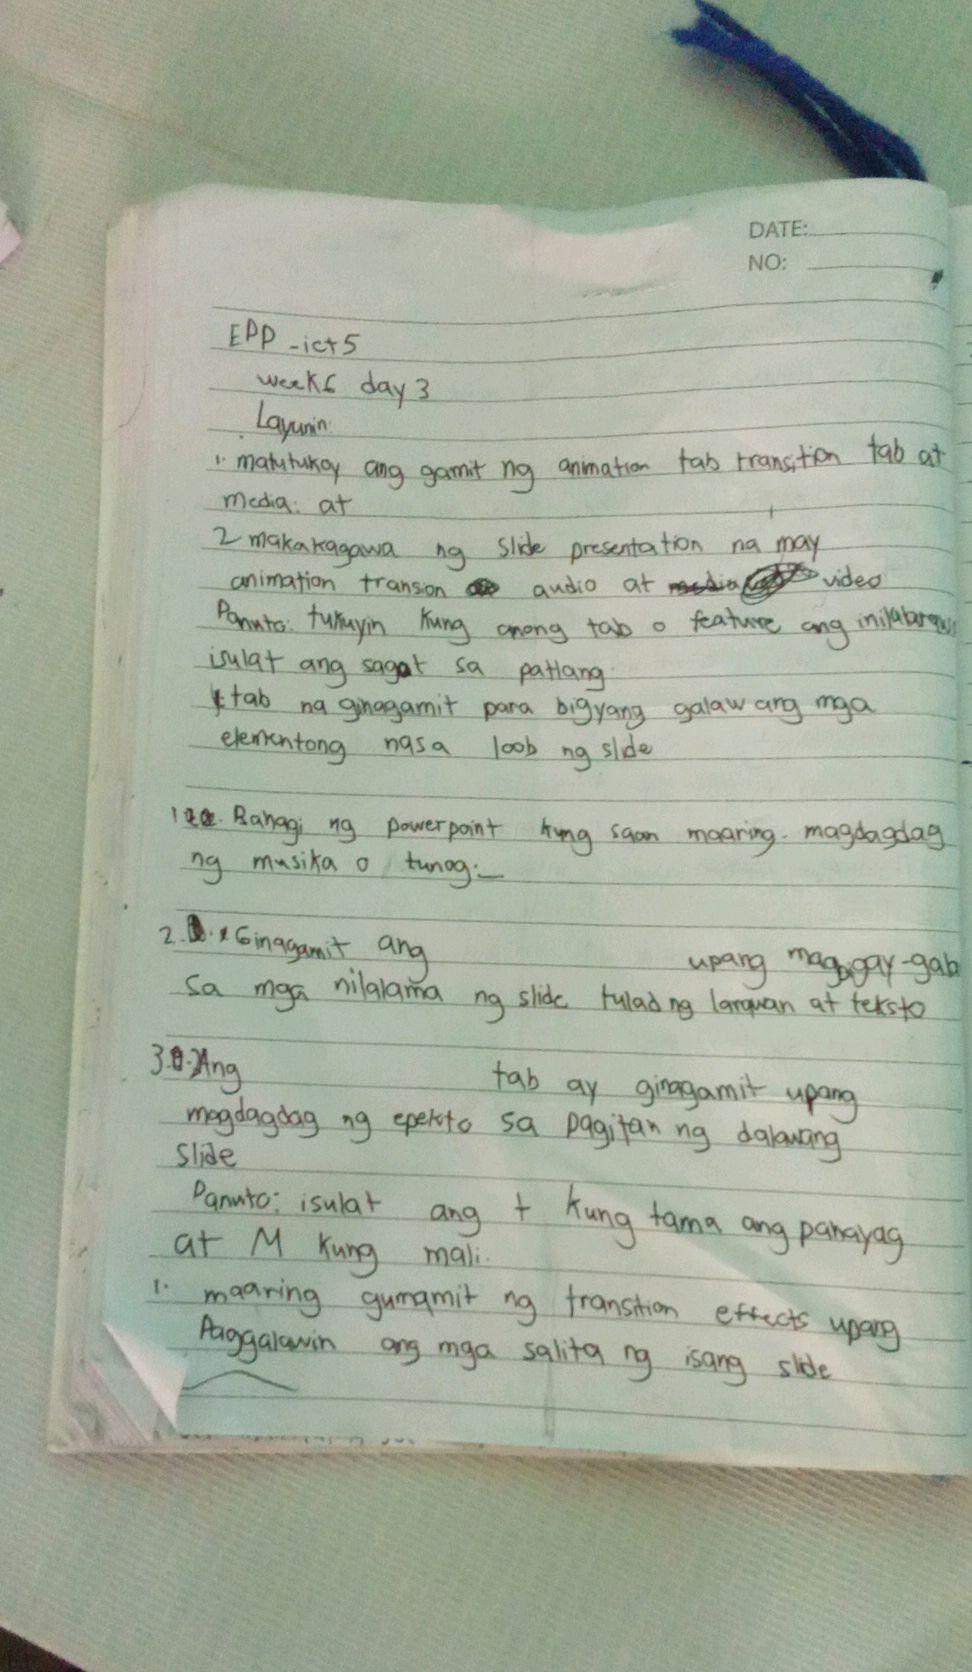 DATE:
NO:
EPP - ict 5
week 6 day 3
Layunin:
1. matutukoy ang gamit ng animation tab transition tab at
media: at
2 makakagawa ng slide presentation na may
animation transion audio at video
Panuto: tukuyin kung anong tab o feature ang
isulat ang sagot sa patlang.
tab na ginagamit para bigyang galaw ang mga
elementong nasa loob ng slide
1. Bahagi ng powerpoint kung saan maaring magdagdag
ng musika o tunog: _
2. Ginagamit ang upang magbigay-gab
sa mga nilalama ng slide tulad ng larawan at teksto
3. Ang tab ay ginagamit upang
magdagdag ng epekto sa pagitan ng dalawang
slide
Panuto: isulat ang t kung tama ang pahayag
at M kung mali.
1. maaring gumamit ng transition effects upang
Paggalawin ang mga salita ng isang slide